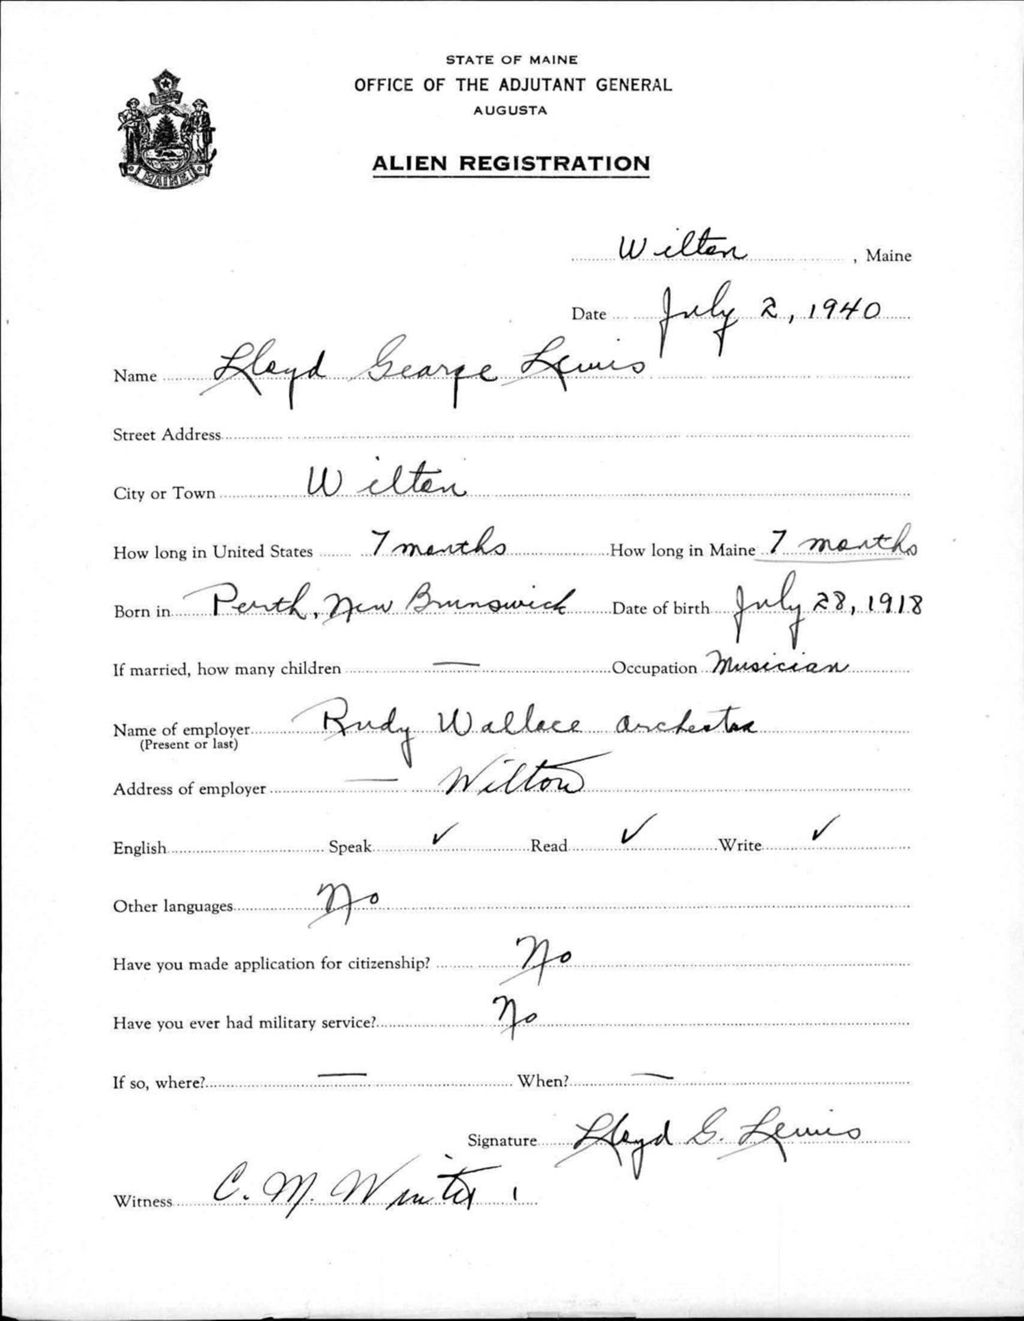 STATE OF MAINE
OFFICE OF THE ADJUTANT GENERAL
AUGUSTA
ALIEN REGISTRATION
MAINE
Wilton, Maine
Date July 2, 1940
Name Lloyd George Lewis
Street Address
City or Town Wilton
How long in United States 7 months How long in Maine 7 months
Born in Perth, New Brunswick Date of birth July 28, 1918
If married, how many children — Occupation Musician
Name of employer Rudy Wallace Orchestra
(Present or last)
Address of employer — Wilton
English Speak ✓ Read ✓ Write ✓
Other languages No
Have you made application for citizenship? No
Have you ever had military service? No
If so, where? — When? —
Signature Lloyd G. Lewis
Witness C. M. Winter